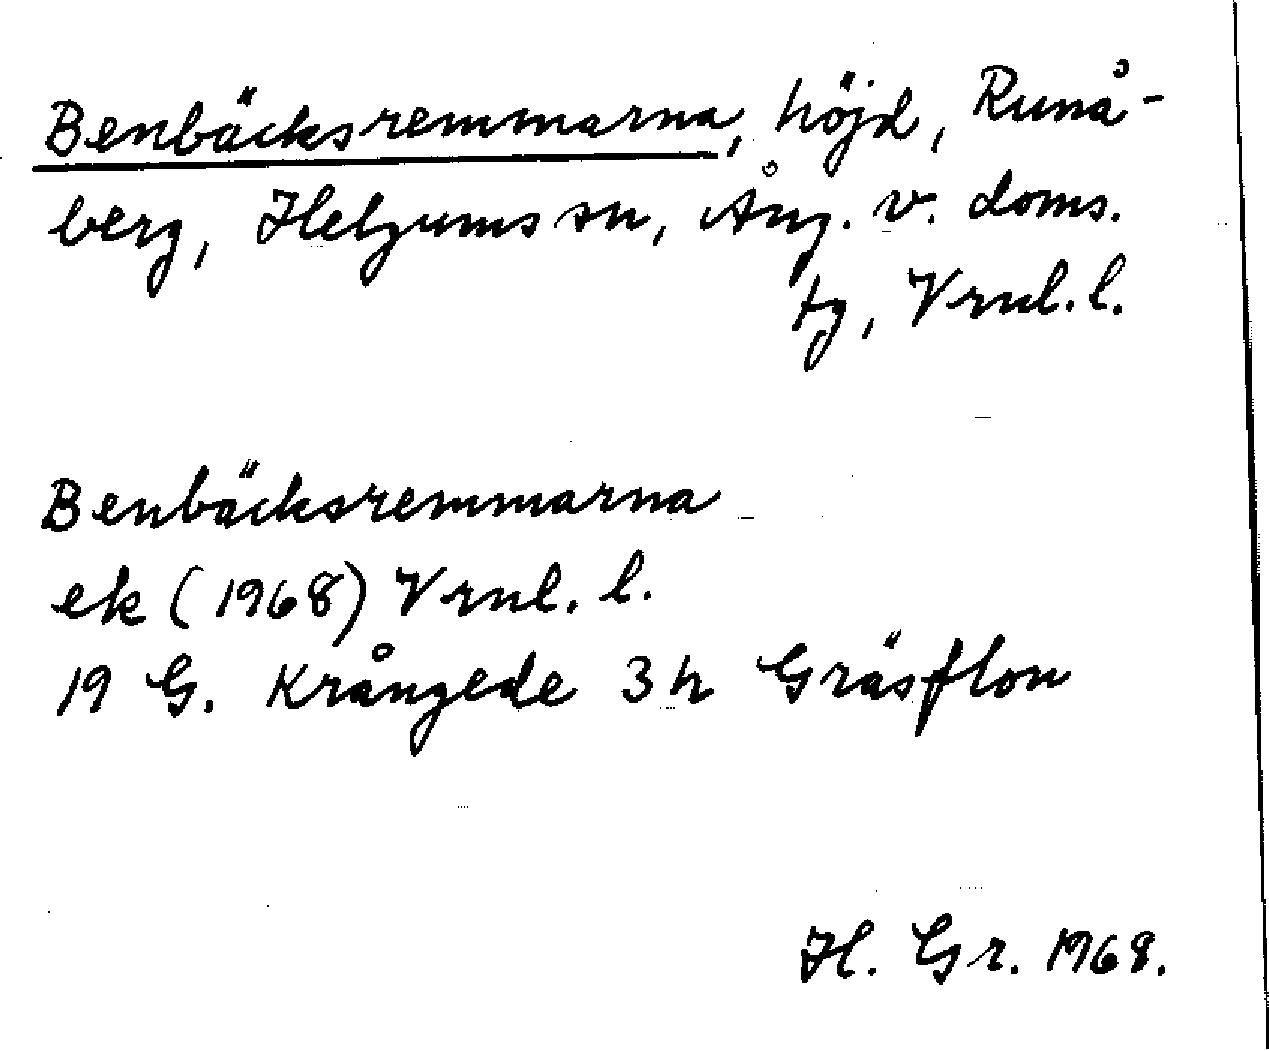 Benbäcksremmarna, höjd, Runå-
berg, Helgums sn, Ång. v. doms.
tg, Vrnl. l.
Benbäcksremmarna
ek (1968) Vrnl. l.
19 G. Krångede 3 h Gräsflon
H. Gr. 1968.